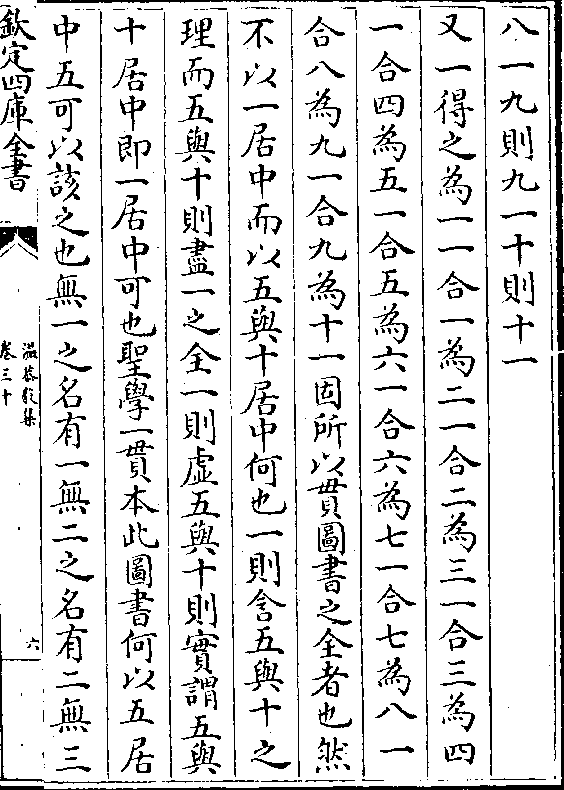 八一九則九一十則十一
又一得之為一一合一為二一合二為三一合三為四
一合四為五一合五為六一合六為七一合七為八一
合八為九一合九為十一固所以貫圖書之全者也然
不以一居中而以五與十居中何也一則含五與十之
理而五與十則盡一之全一則虛五與十則實謂五與
十居中即一居中可也聖學一貫本此圖書何以五居
中五可以該之也無一之名有一無二之名有二無三
欽定四庫全書
溫恭毅集
卷三十
六